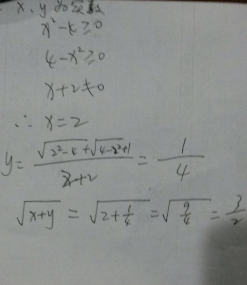 x、y为实数
x²-4≥0
4-x²≥0
x+2≠0
∴ x=2
y= (√(2²-4)+√(4-2²)+1)/(2+2) = 1/4
√(x+y) = √(2+1/4) = √(9/4) = 3/2